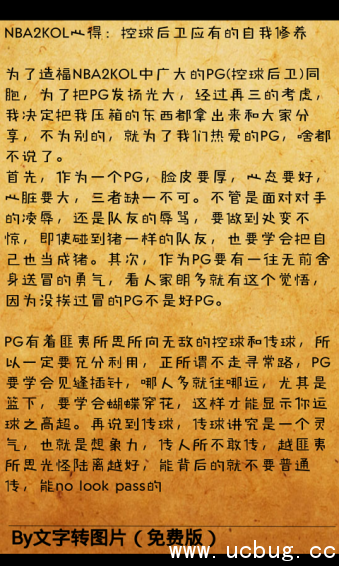 NBA2KOL心得：控球后卫应有的自我修养
为了造福NBA2KOL中广大的PG(控球后卫)同
胞，为了把PG发扬光大，经过再三的考虑，
我决定把我压箱的东西都拿出来和大家分
享，不为别的，就为了我们热爱的PG，啥都
不说了。
首先，作为一个PG，脸皮要厚，心态要好，
心脏要大，三者缺一不可。不管是面对对手
的凌辱，还是队友的辱骂，要做到处变不
惊，即使碰到猪一样的队友，也要学会把自
己也当成猪。其次，作为PG要有一往无前舍
身送冒的勇气，看人家朗多就有这个觉悟，
因为没挨过冒的PG不是好PG。
PG有着匪夷所思所向无敌的控球和传球，所
以一定要充分利用，正所谓不走寻常路，PG
要学会见缝插针，哪人多就往哪运，尤其是
篮下，要学会蝴蝶穿花，这样才能显示你运
球之高超。再说到传球，传球讲究是一个灵
气，也就是想象力，传人所不敢传，越匪夷
所思光怪陆离越好，能背后的就不要普通
传，能no look pass的
By文字转图片（免费版）
www.ucbug.cc